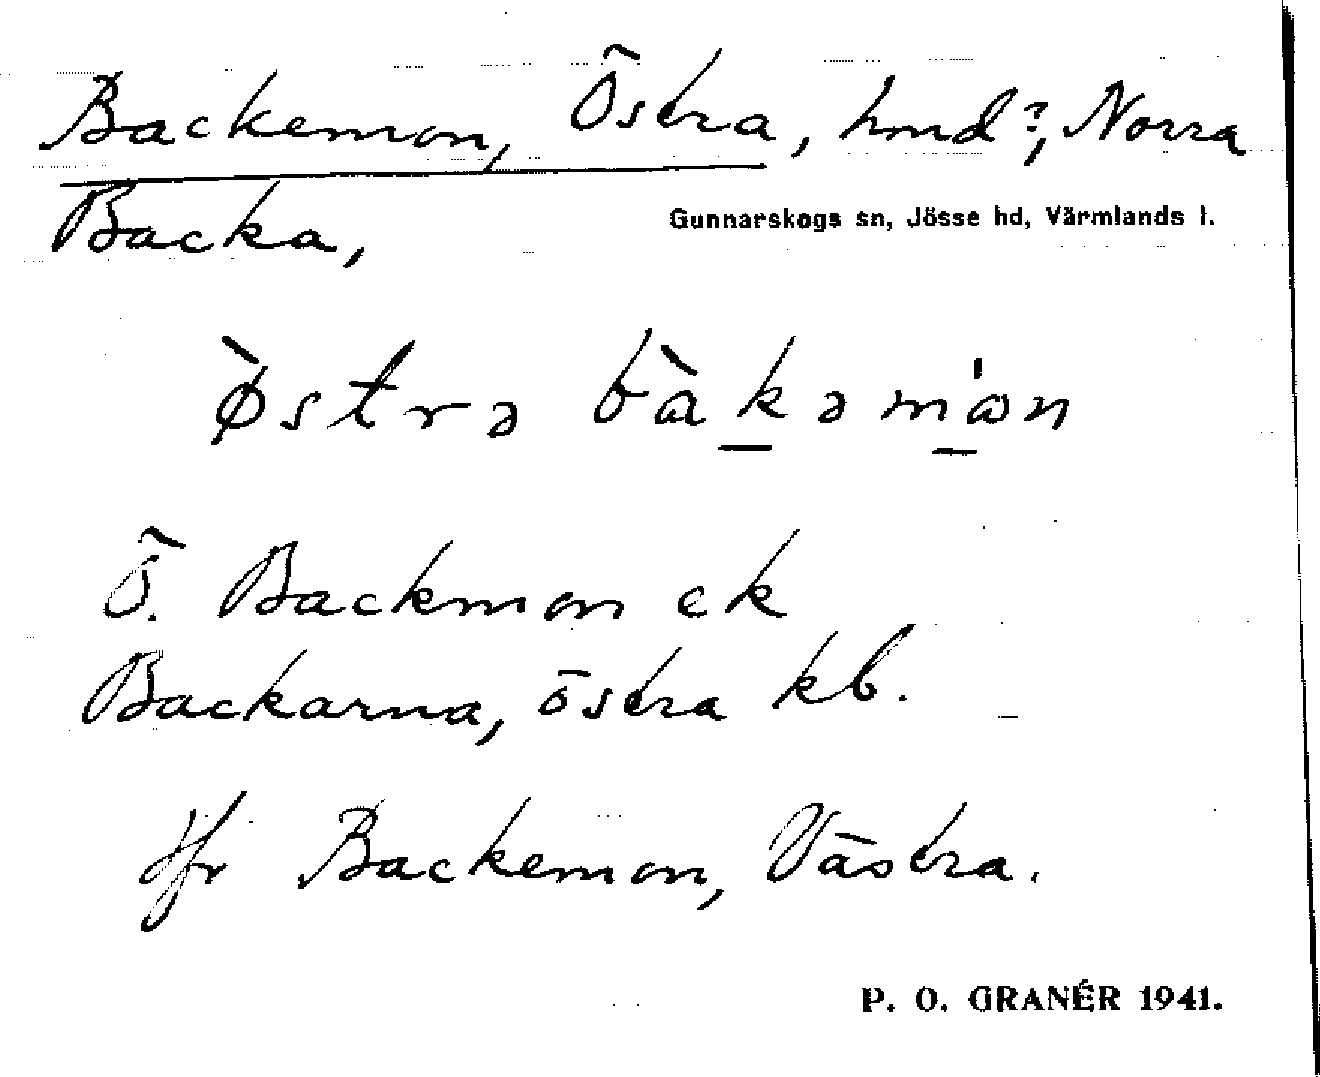 Backemon, Östra, hmd?, Norra
Backa,
Gunnarskogs sn, Jösse hd, Värmlands l.
ø̀strə bàkəmån
Ö. Backmon ek
Backarna, östra kb.
Jfr Backemon, Västra.
P. O. GRANÉR 1941.